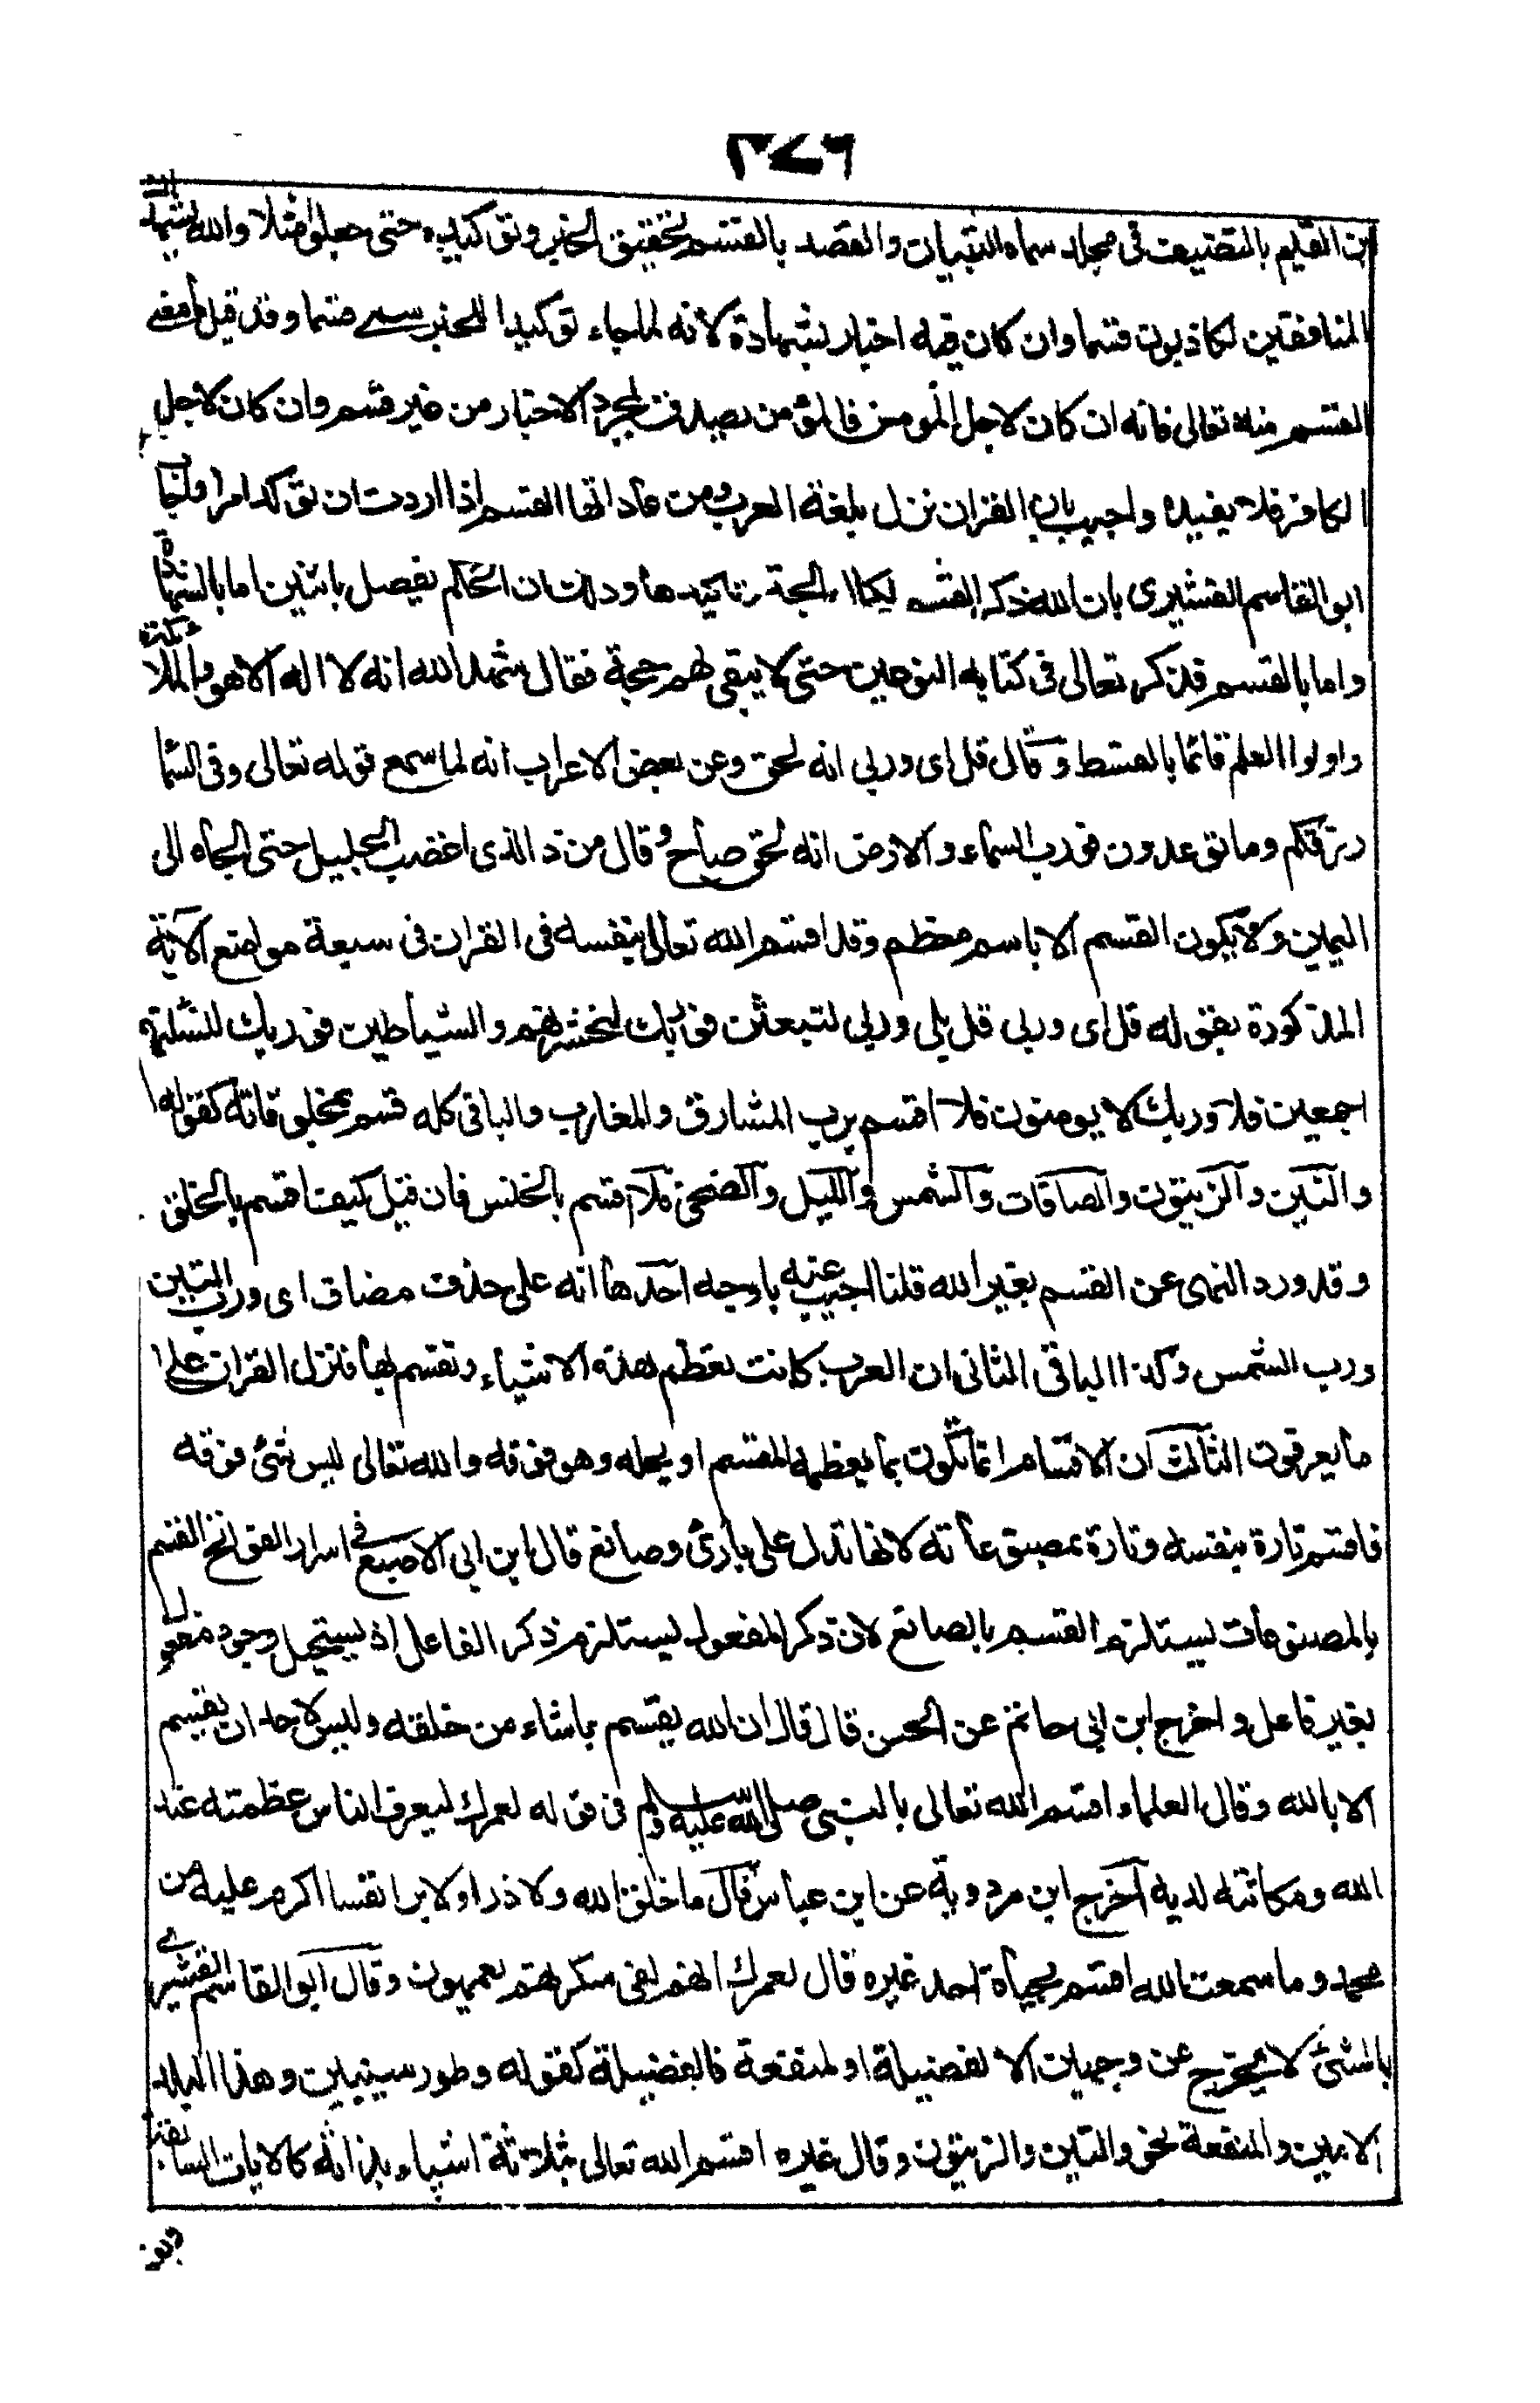 ٣٧٦
ابن القيم بالتصنيف فى مجلد سماه التبيان والقصد بالقسم تحقيق الخبر وتوكيده حتى جعلوا مثلا والله يشهد ان
المنافقين لكاذبون قسما وان كان فيه اخبار بشهادة لانه لما جاء توكيدا للخبر سمى قسما وقد قيل ما معنى
القسم منه تعالى فانه ان كان لاجل المومن فالمؤمن يصدق بمجرد الاخبار من غير قسم وان كان لاجل
الكافر فلا يفيده واجيب بان القران نزل بلغة العرب ومن عاداتها القسم اذا اردت ان توكد امرا واجاب
ابو القاسم القشيرى بان الله ذكر القسم لكمال الحجة وتاكيدها وذلك ان الحكم يفصل باثنين اما بالشهادة
واما بالقسم فذكر تعالى فى كتابه النوعين حتى لا يبقى لهم حجة فقال شهد الله انه لا اله الا هو والملائكة
واولوا العلم قائما بالقسط وقال قل اى وربى انه لحق وعن بعض الاعراب انه لما سمع قوله تعالى وفى السماء
رزقكم وما توعدون فورب السماء والارض انه لحق صاح وقال من ذ الذى اغضب الجليل حتى الجأه الى
اليمين ولا يكون القسم الا باسم معظم وقد اقسم الله تعالى بنفسه فى القران فى سبعة مواضع الآية
المذكورة بقوله قل اى وربى قل بلى وربى لتبعثن فوربك لنحشرنهم والشياطين فوربك لنسئلنهم
اجمعين فلا وربك لا يومنون فلا اقسم برب المشارق والمغارب والباقى كله قسم بمخلوقاته كقوله
والتين والزيتون والصافات والشمس والليل والضحى فلا اقسم بالخنس فان قيل كيف اقسم بالخلق
وقد ورد النهى عن القسم بغير الله قلنا اجيب عنه باوجه احدها انه على حذف مضاف اى ورب التين
ورب الشمس وكذا الباقى الثانى ان العرب كانت تعظم هذه الاشياء وتقسم بها فنزل القران على
ما يعرفون الثالث ان الاقسام انما تكون بما يعظمه المقسم او يجله وهو فوقه والله تعالى ليس شئ فوقه
فاقسم تارة بنفسه وتارة بمصنوعاته لانها تدل على بارئ وصانع قال ابن ابى الاصبع فى اسرار الفواتح القسم
بالمصنوعات يستلزم القسم بالصانع لان ذكر المفعول يستلزم ذكر الفاعل اذ يستحيل وجود مفعول
بغير فاعل واخرج ابن ابى حاتم عن الحسن قال قال ان الله يقسم بما شاء من خلقه وليس لاحد ان يقسم
الا بالله وقال العلماء اقسم الله تعالى بالنبى صلى الله عليه وسلم فى قوله لعمرك ليعرف الناس عظمته عند
الله ومكانته لديه اخرج ابن مردوية عن ابن عباس قال ما خلق الله ولا ذرا ولا برا نفسا اكرم عليه من
محمد وما سمعت الله اقسم بحياة احمد غيره قال لعمرك انهم لفى سكرتهم يعمهون وقال ابو القاسم القشيرى
بالشئ لا يخرج عن وجهين الا لفضيلة او لمنفعة فالفضيلة كقوله وطور سينين وهذا البلد
الامين والمنفعة نحو والتين والزيتون وقال غيره اقسم الله تعالى بثلاثة اشياء بذاته كالايات السابقة